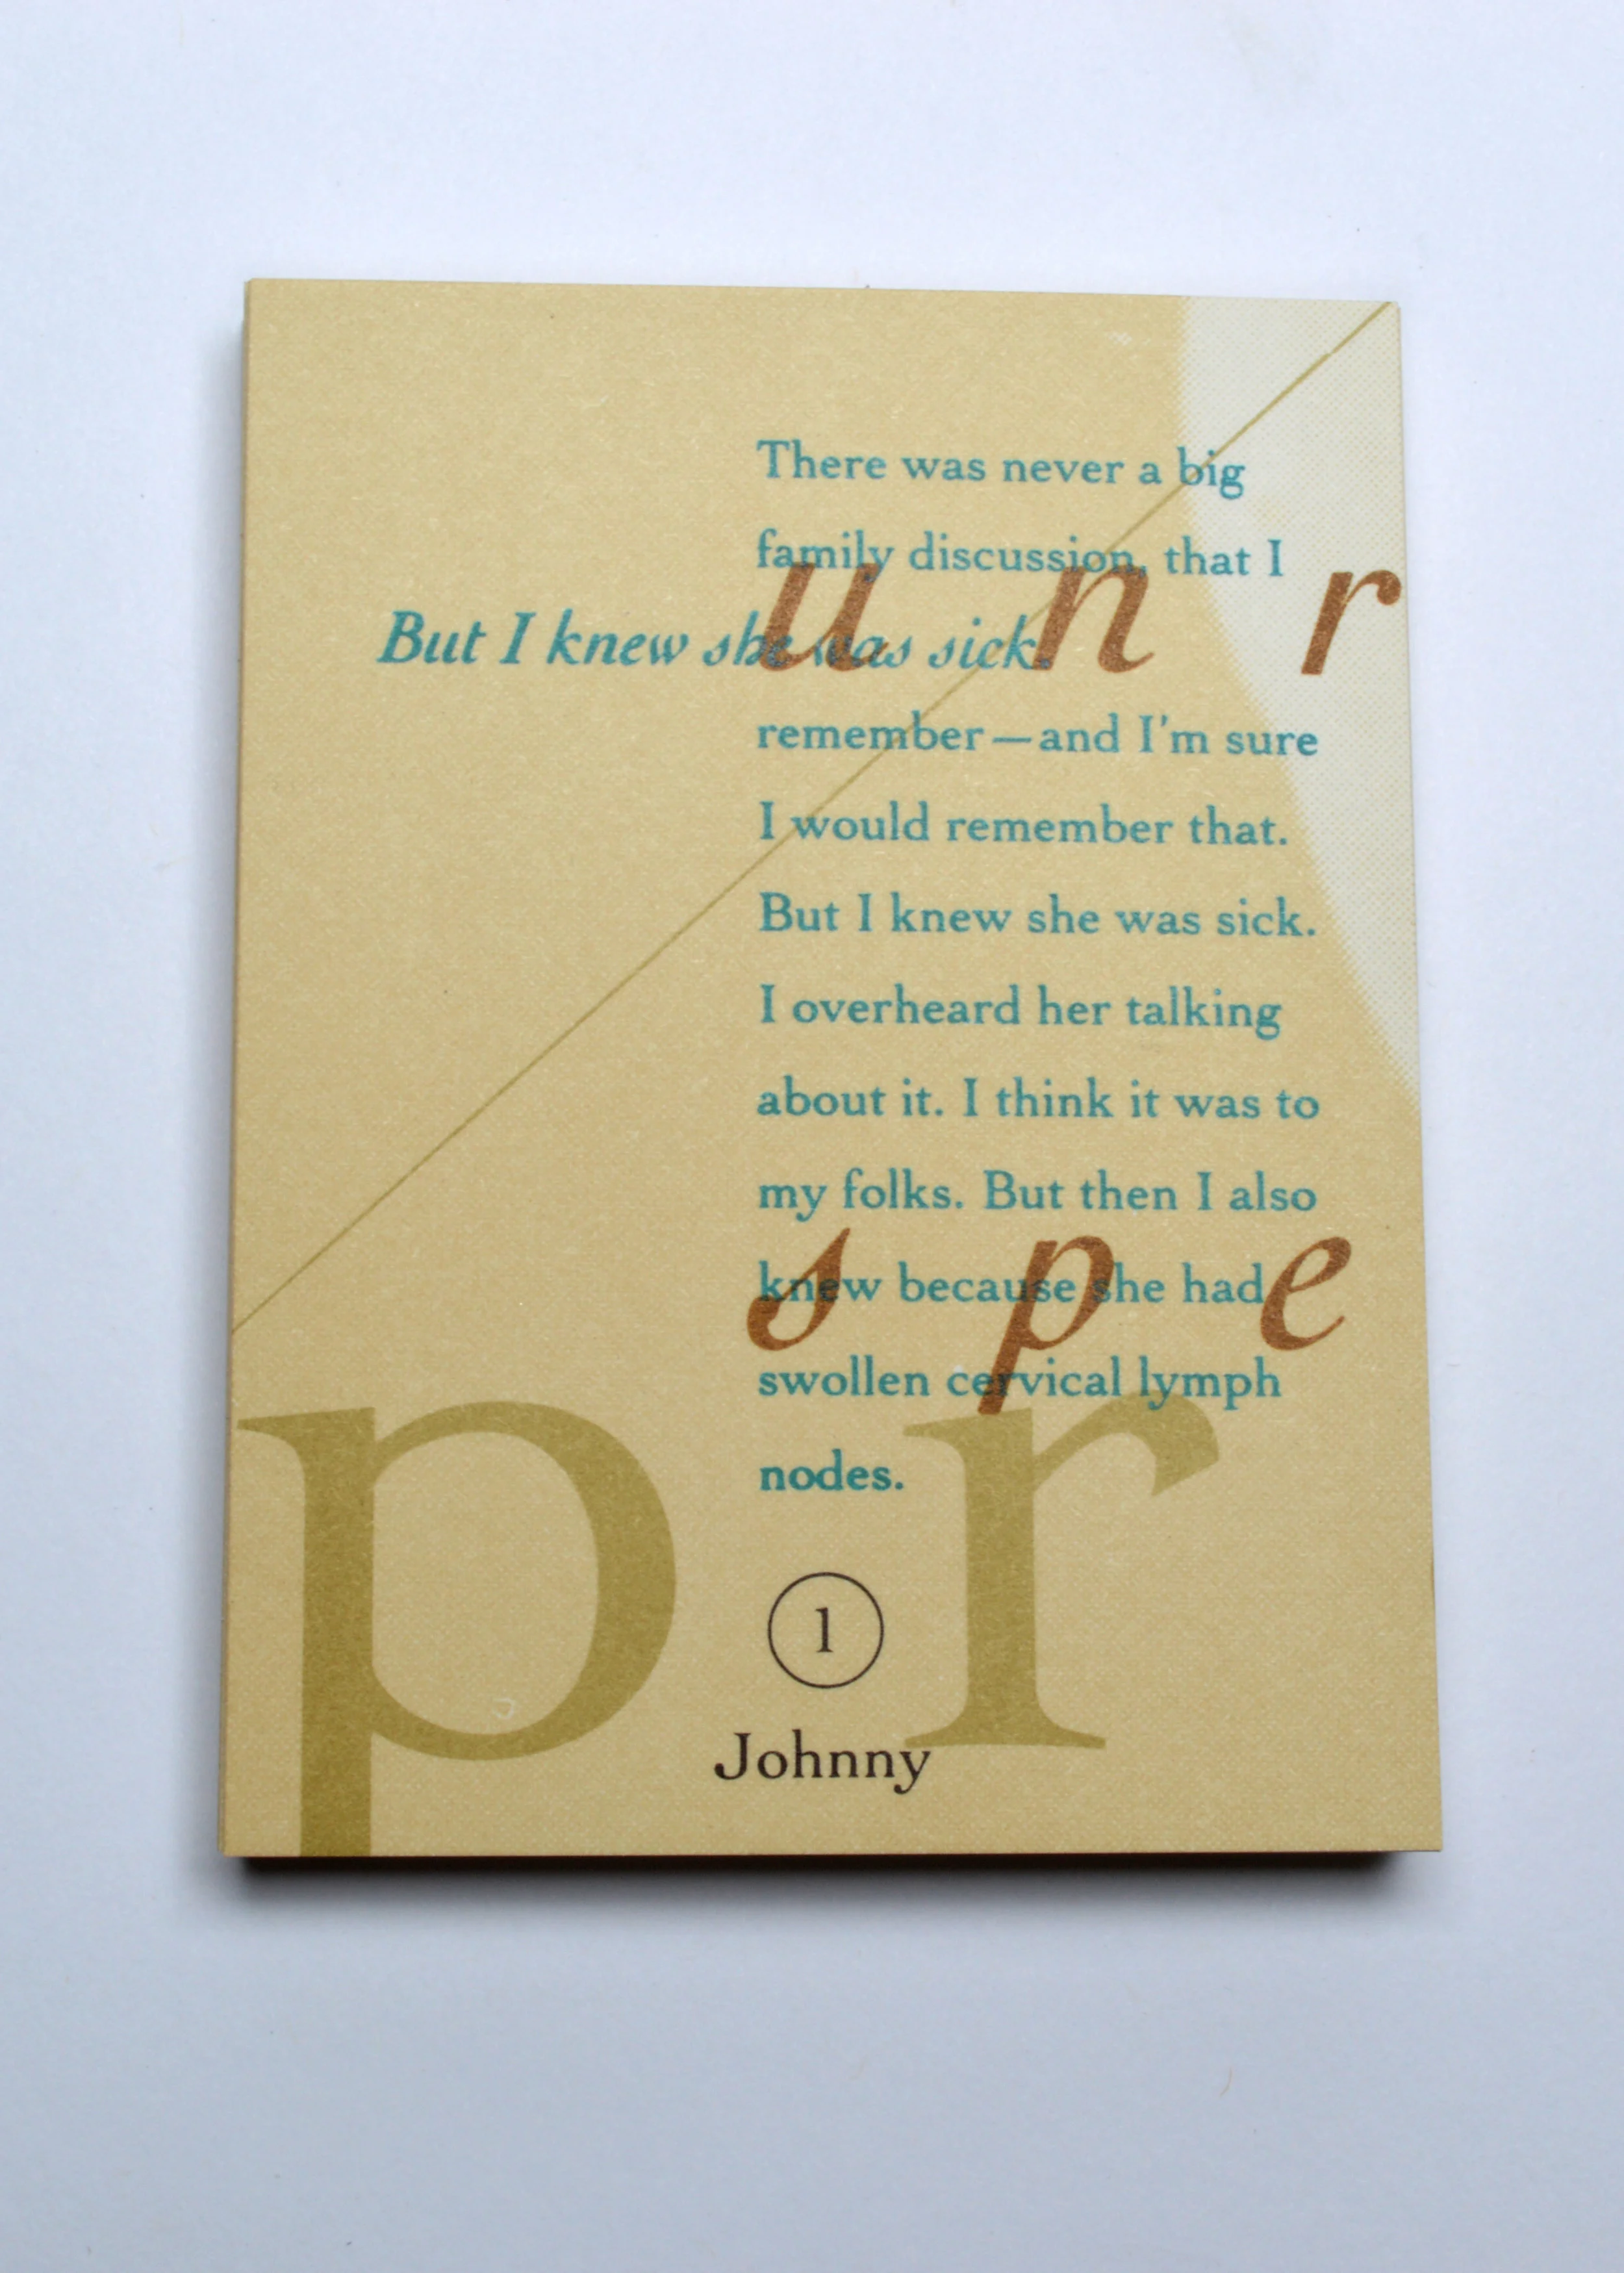 There was never a big
family discussion, that I
u n r
But I knew she was sick.
remember—and I'm sure
I would remember that.
But I knew she was sick.
I overheard her talking
about it. I think it was to
my folks. But then I also
s p e
knew because she had
swollen cervical lymph
p r
nodes.
1
Johnny